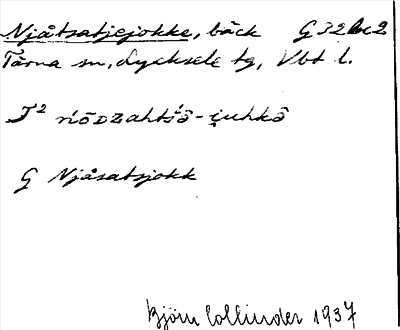 Njåtsatjejokke, bäck G 32 c 2
Tärna sn, Lycksele tg, Vbt l.
J² ńŏᴅzahtśâ-i̯uhkâ
G Njåsatsjokk
Björn Collinder 1937